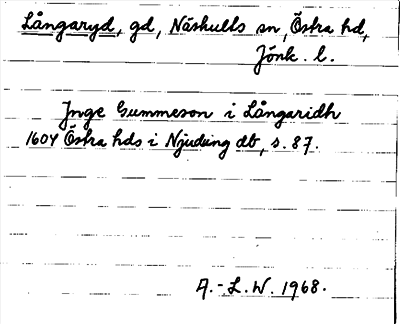 Långaryd, gd, Näshults sn, Östra hd,
Jönk. l.
Inge Gummeson i Långaridh
1604 Östra hds i Njudung db, s. 87.
A.-L.W. 1968.